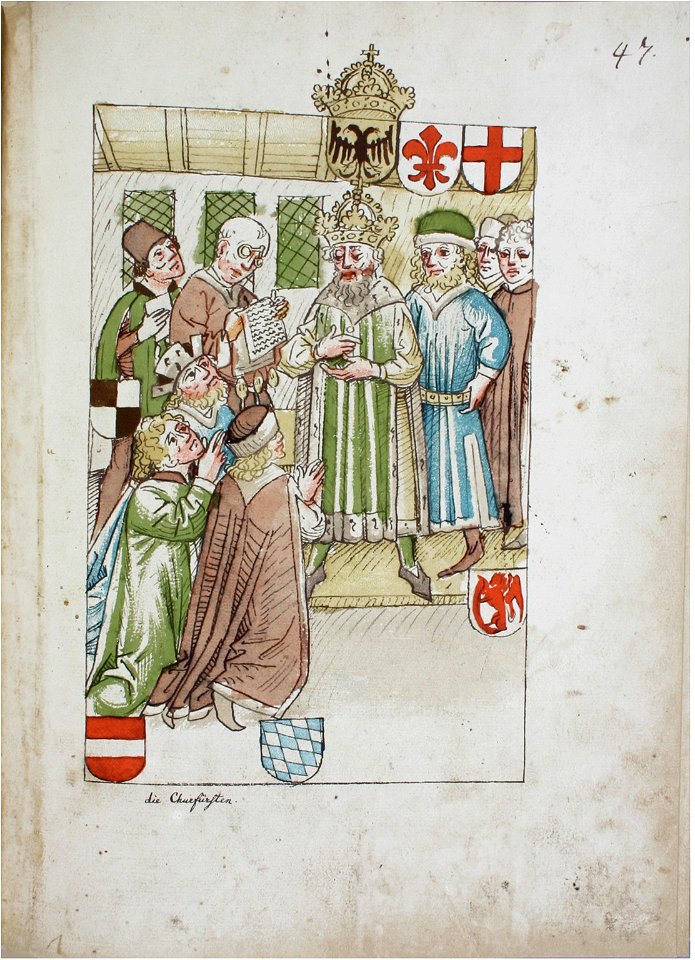 47.
die Churfürsten.